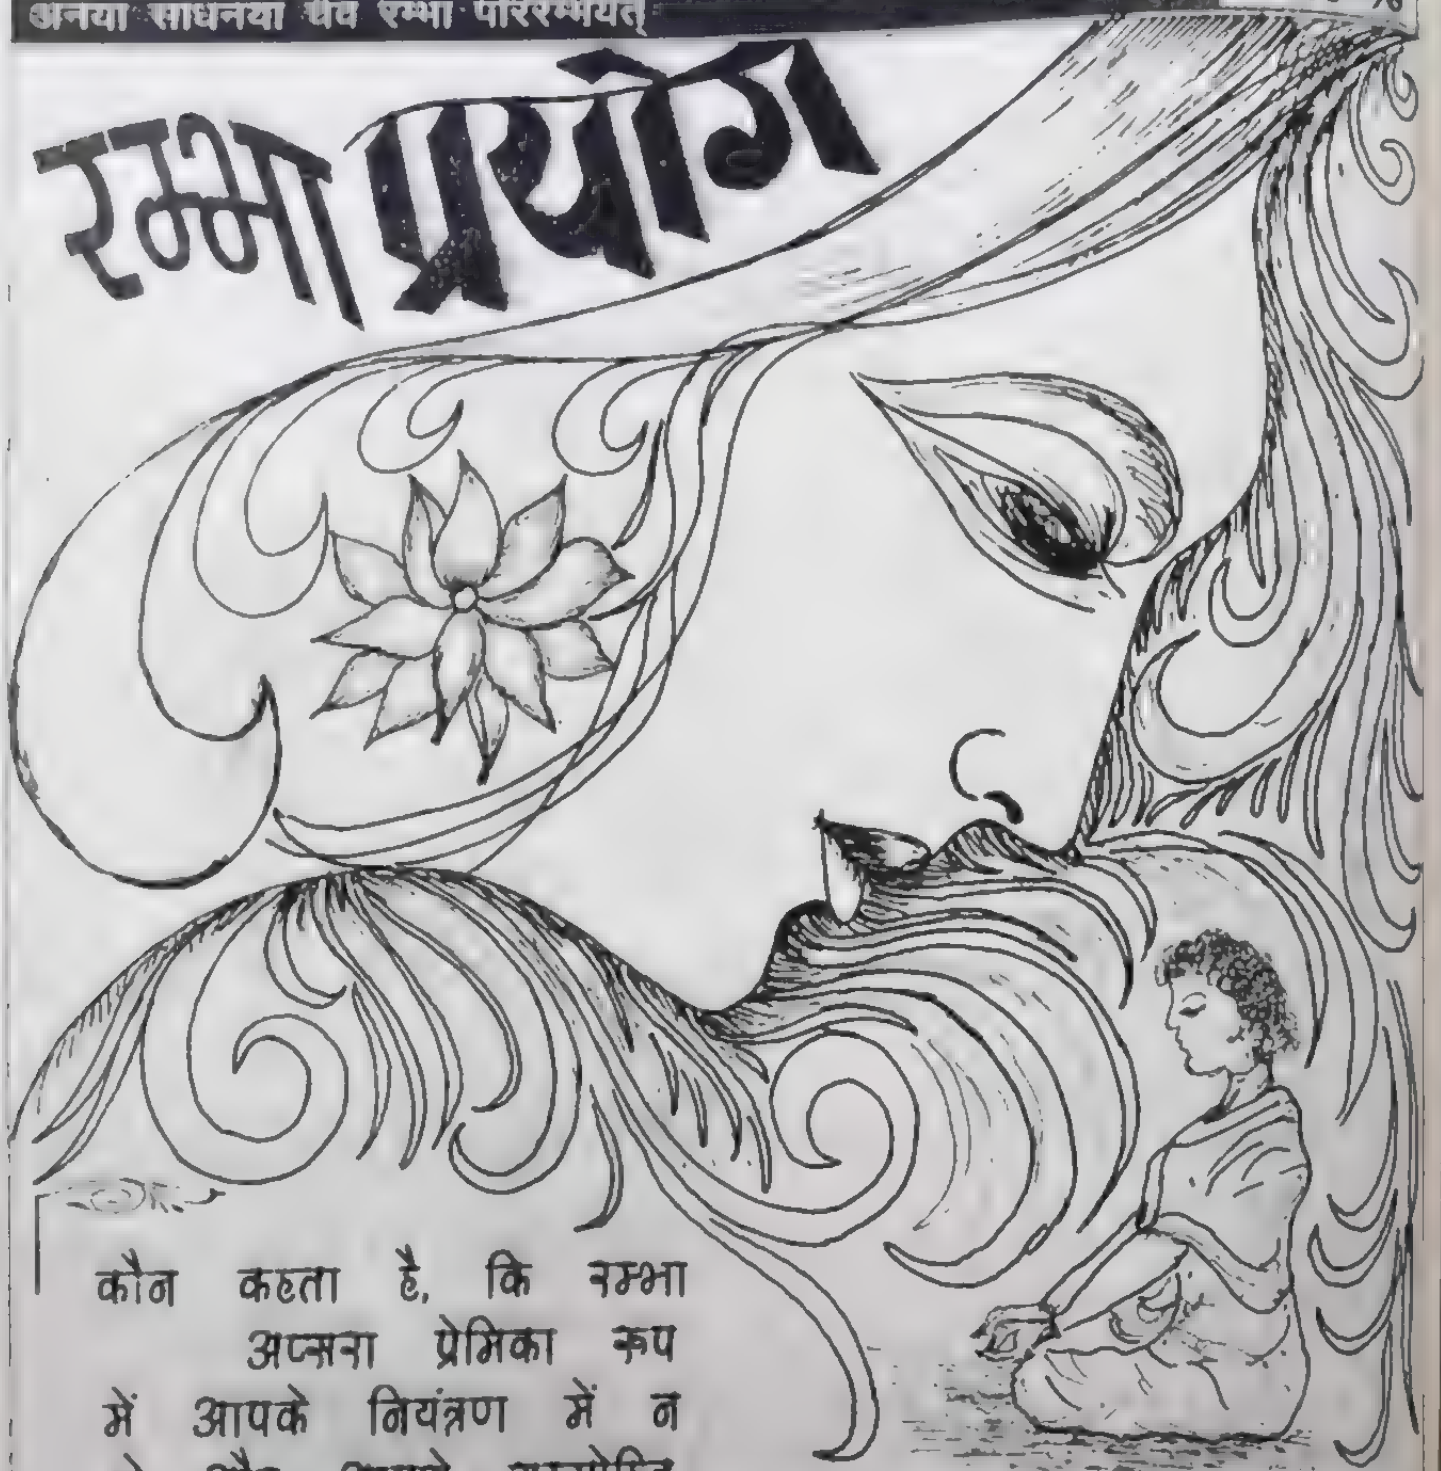 अनया साधनया चैव रम्भा परिरम्भयेत्
रम्भा प्रयोग
कौन कहता है, कि रम्भा
अप्सरा प्रेमिका रूप
में आपके नियंत्रण में न